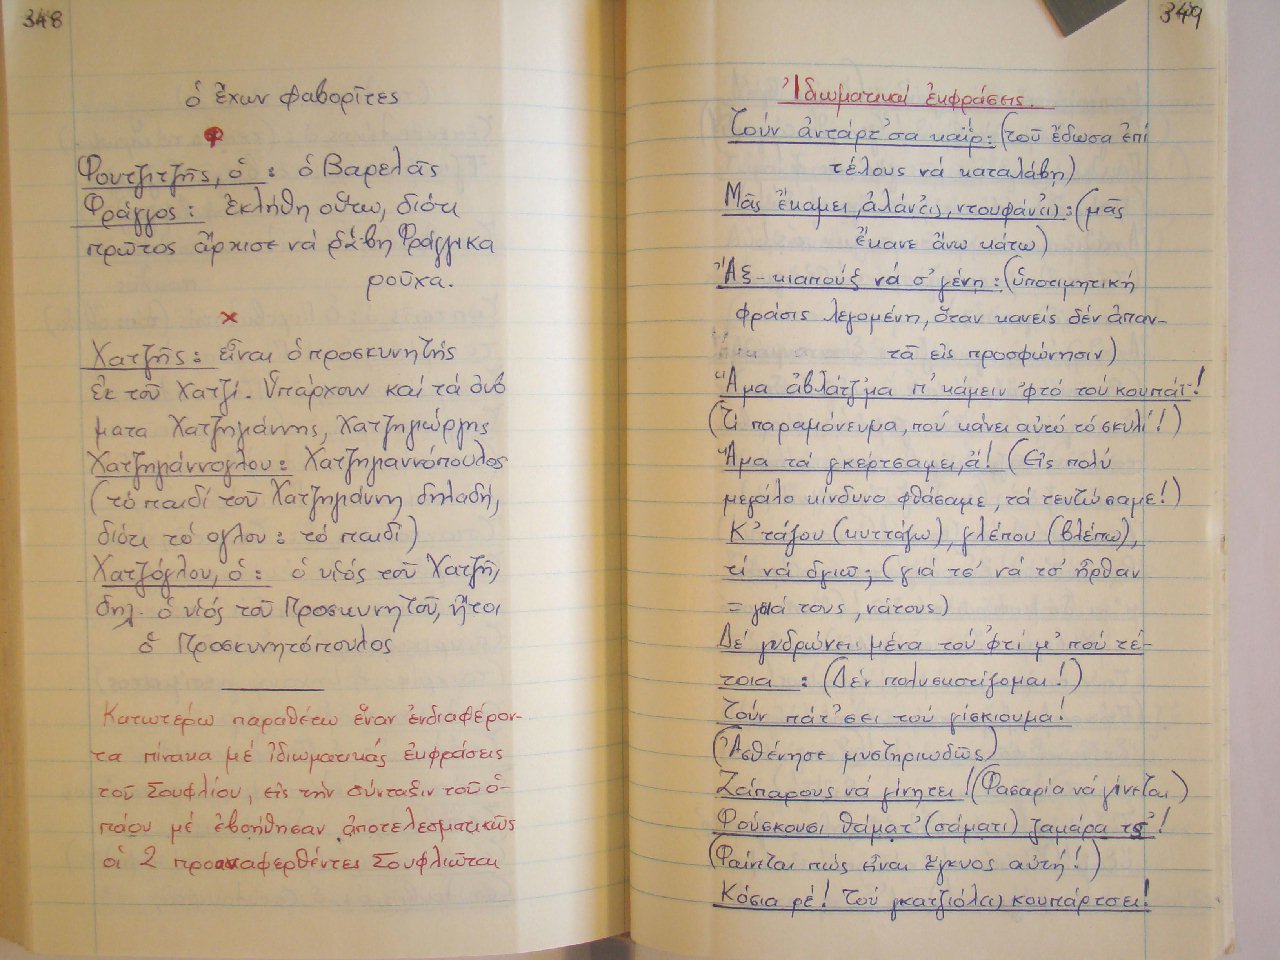 348
ὁ ἔχων φαβορῖτες
Φουτζιτζῆς, ὁ : ὁ Βαρελᾶς
Φράγγος : ἐκλήθη οὕτω, διότι
πρῶτος ἄρχισε νά ράβῃ Φράγγικα
ροῦχα.
Χατζῆς : εἶναι ὁ προσκυνητής
ἐκ τοῦ Χατζί. Ὑπάρχουν καί τά ὀνό
ματα Χατζηγιάννης, Χατζηγιώργης
Χατζηγιάννογλου : Χατζηγιαννόπουλος
(τό παιδί τοῦ Χατζηγιάννη δηλαδή,
διότι τό ογλου : τό παιδί)
Χατζόγλου, ὁ : ὁ υἱός τοῦ Χατζῆ,
δηλ. ὁ υἱός τοῦ Προσκυνητοῦ, ἤτοι
ὁ Προσκυνητόπουλος
Κατωτέρω παραθέτω ἕναν ἐνδιαφέρον-
τα πίνακα μέ ἰδιωματικάς ἐκφράσεις
τοῦ Σουφλίου, εἰς τήν σύνταξιν τοῦ ὁ-
ποίου μέ ἐβοήθησαν ἀποτελεσματικῶς
οἱ 2 προαναφερθέντες Σουφλιῶται
349
Ἰδιωματικαί ἐκφράσεις.
Τούν ἀντάρτ'σα καΐρ : (τοῦ ἔδωσα ἐπί
τέλους νά καταλάβῃ)
Μᾶς ἔκαμει, ἀλάντζι, ντουφάντζι) : (μᾶς
ἔκανε ἄνω κάτω)
Ἄξ-κιαπούξ νά σ' γένῃ : (ὑποτιμητική
φράσις λεγομένη, ὅταν κανείς δέν ἀπαν-
τᾶ εἰς προσφώνησιν)
Ἅμα ἀβλάτζ'μα π' κάμειν 'φτό τού κουπάϊ!
(Τί παραμόνευμα, πού κάνει αὐτό τό σκυλί!)
Ἅμα τά γκέρτσαμει, ἄ! (Εἰς πολύ
μεγάλο κίνδυνο φθάσαμε, τά τεντώσαμε!)
Κ'τάζου (κυττάζω), γλέπου (βλέπω),
τί νά διγιῶ ; (γιά τσ' νά τσ' ἦρθαν
= γιά τους, νάτους)
Δέ γυδρώνει μένα τού 'φτί μ' πού τέ-
τοια : (Δέν πολυσκοτίζομαι!)
Τούν πάτ'σει τού γίσκιουμα!
(Ἀσθένησε μυστηριωδῶς)
Ζάπαρους νά γίνητει! (Φασαρία νά γίνεται)
Φούσκουσι θάματ' (σάματι) ζαμάρα τσ'!
(Φαίνεται πώς εἶναι ἔγκυος αὐτή!)
Κόσια ρέ! Τού γκατζιόλει κουπάρτσει!